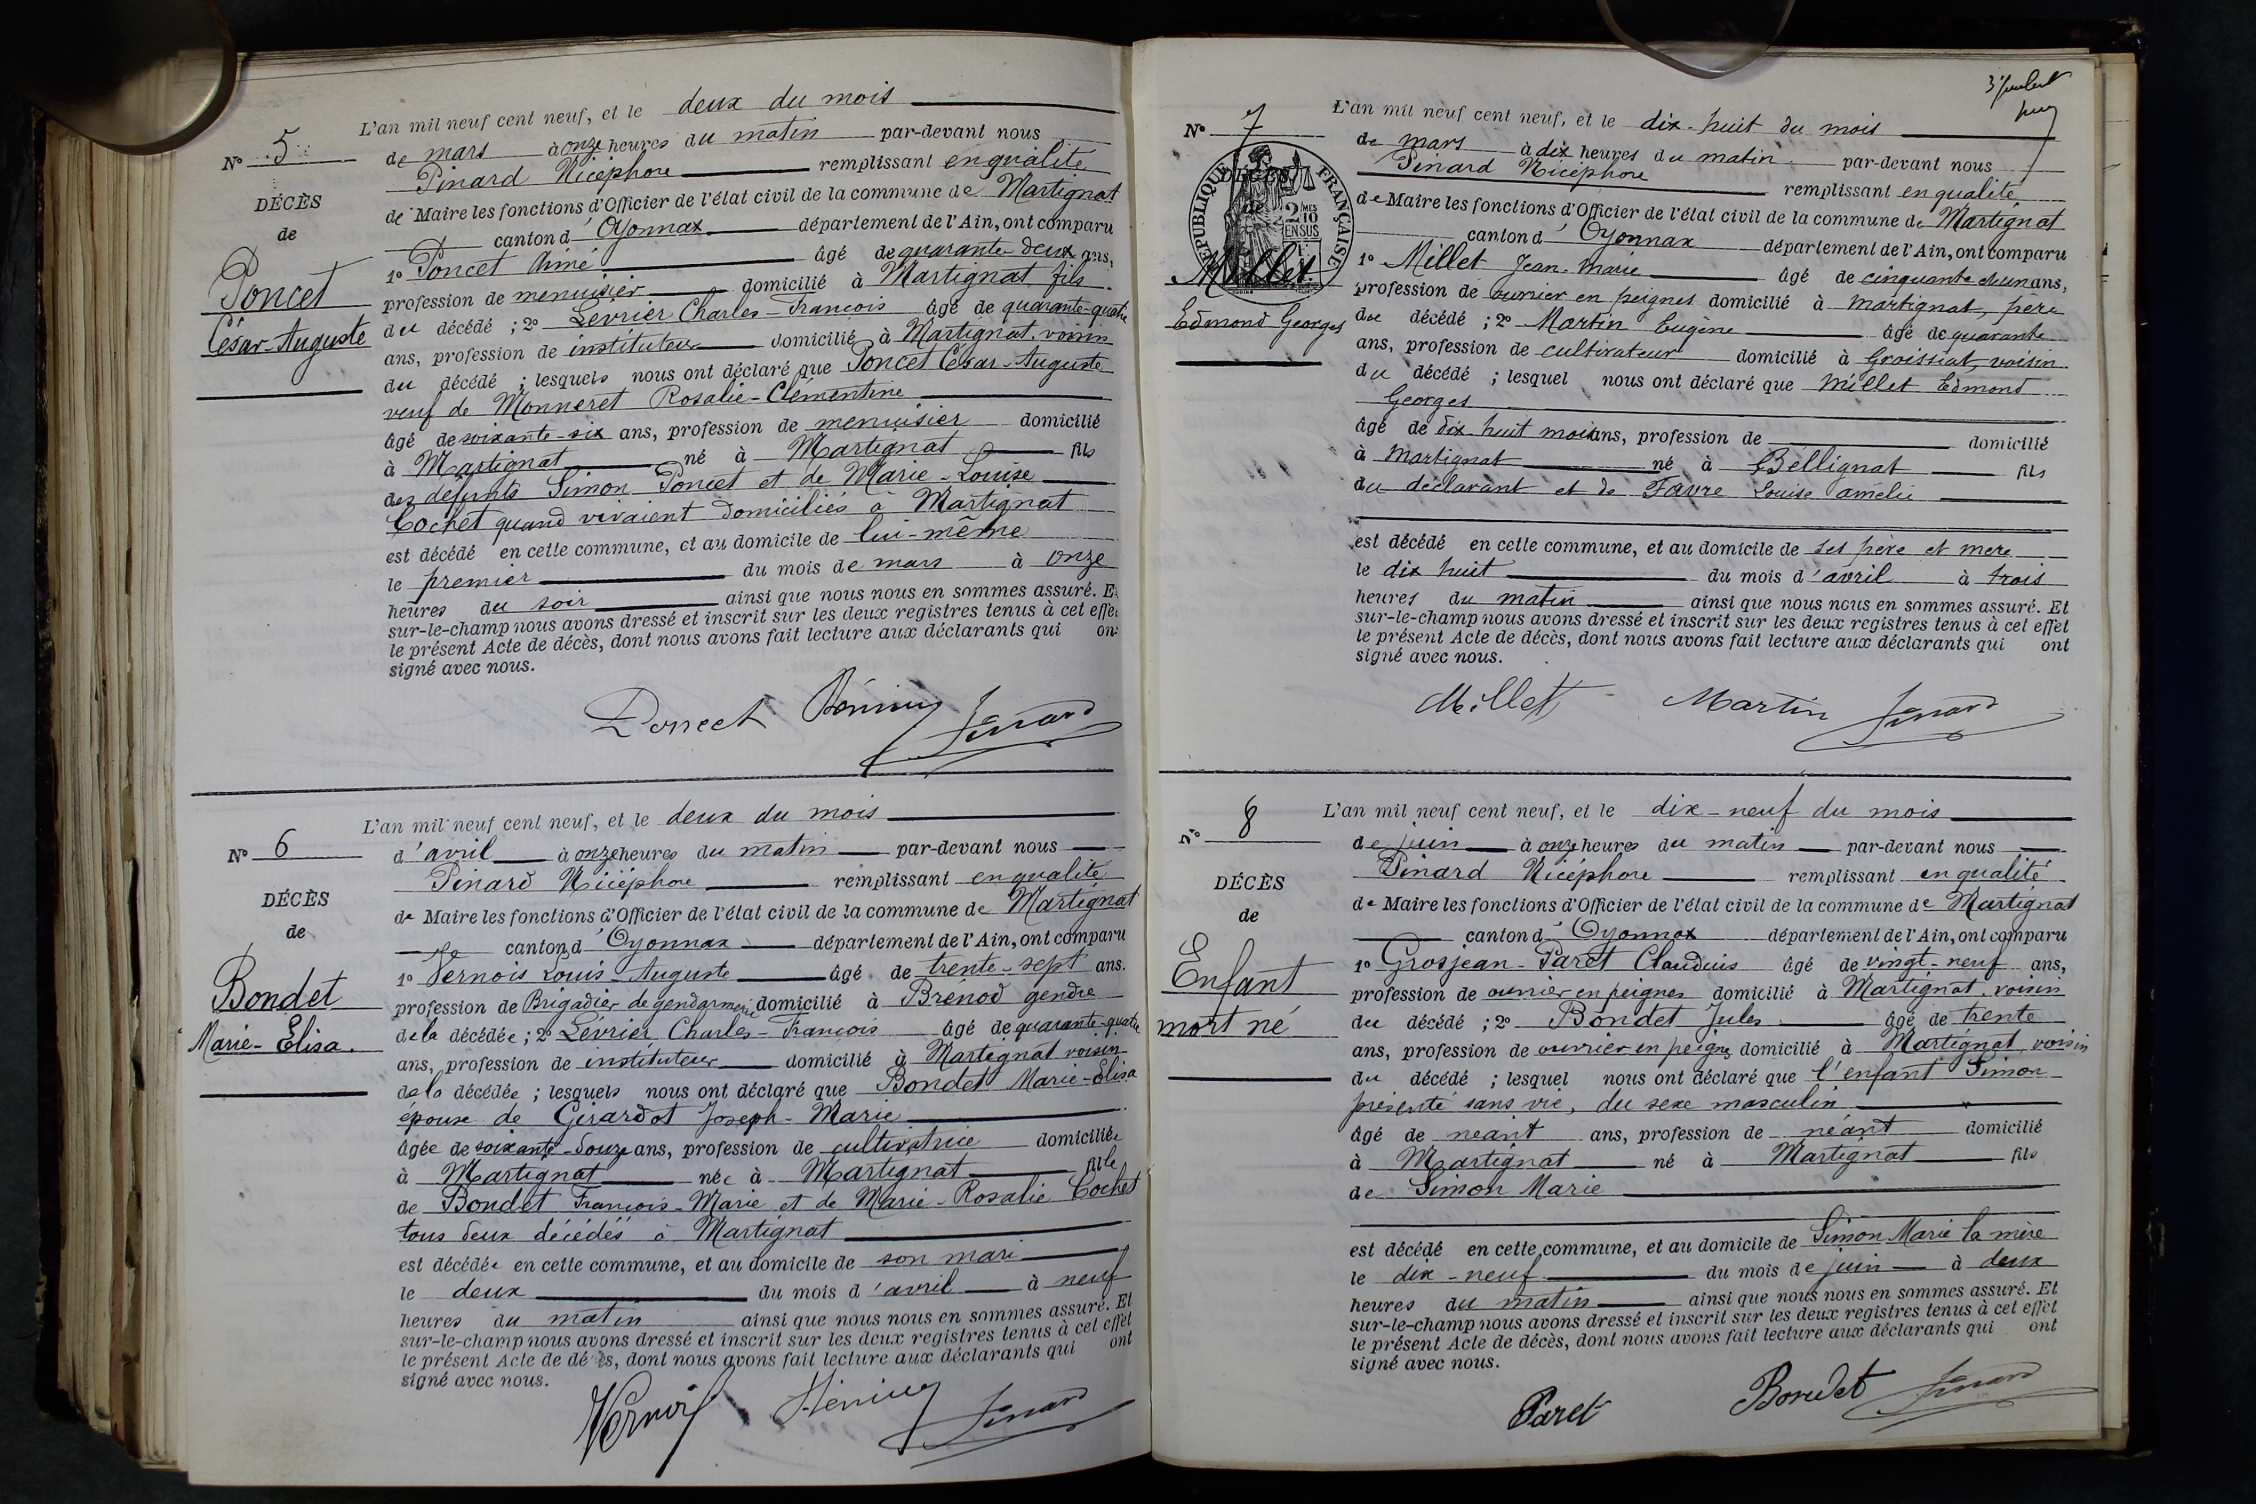 L'an mil neuf cent neuf, et le deux du mois
N° 5
de mars à onze heures du matin par-devant nous
Pinard Nicéphore remplissant en qualité
DÉCÈS
de Maire les fonctions d'Officier de l'état civil de la commune de Martignat
de
canton d'Oyonnax département de l'Ain, ont comparu
1° Poncet Aimé âgé de quarante-deux ans,
Poncet
profession de menuisier domicilié à Martignat fils
César-Auguste
du décédé ; 2° Lévrier Charles-François âgé de quarante-quatre
ans, profession de instituteur domicilié à Martignat, voisin
du décédé ; lesquels nous ont déclaré que Poncet César-Auguste
veuf de Monneret Rosalie-Clémentine
âgé de soixante-six ans, profession de menuisier domicilié
à Martignat né à Martignat fils
des défunts Simon Poncet et de Marie-Louise
Cochet quand vivaient domiciliés à Martignat
est décédé en cette commune, et au domicile de lui-même
le premier du mois de mars à onze
heures du soir ainsi que nous nous en sommes assuré. Et
sur-le-champ nous avons dressé et inscrit sur les deux registres tenus à cet effet
le présent Acte de décès, dont nous avons fait lecture aux déclarants qui ont
signé avec nous.
Poncet Pinard
L'an mil neuf cent neuf, et le deux du mois
N° 6
d'avril à onze heures du matin par-devant nous
Pinard Nicéphore remplissant en qualité
DÉCÈS
de Maire les fonctions d'Officier de l'état civil de la commune de Martignat
de
canton d'Oyonnax département de l'Ain, ont comparu
1° Vernois Louis-Auguste âgé de trente-sept ans.
Bondet
profession de Brigadier de gendarmerie domicilié à Brénod gendre
Marie-Elisa.
de la décédée ; 2° Lévrier Charles-François âgé de quarante-quatre
ans, profession de instituteur domicilié à Martignat voisin
de la décédée ; lesquels nous ont déclaré que Bondet Marie-Elisa
épouse de Girardot Joseph-Marie
âgée de soixante-douze ans, profession de cultivatrice domiciliée
à Martignat née à Martignat fille
de Bondet François-Marie et de Marie-Rosalie Cochet
tous deux décédés à Martignat
est décédée en cette commune, et au domicile de son mari
le deux du mois d'avril à neuf
heures du matin ainsi que nous nous en sommes assuré. Et
sur-le-champ nous avons dressé et inscrit sur les deux registres tenus à cet effet
le présent Acte de décès, dont nous avons fait lecture aux déclarants qui ont
signé avec nous.
Vernois Pinard
L'an mil neuf cent neuf, et le dix-huit du mois
N° 7
de mars à dix heures du matin par-devant nous
Pinard Nicéphore remplissant en qualité
DÉCÈS
RÉPUBLIQUE FRANÇAISE
2/10 MES
EN SUS
de Maire les fonctions d'Officier de l'état civil de la commune de Martignat
de
canton d'Oyonnax département de l'Ain, ont comparu
1° Millet Jean-Marie âgé de cinquante et un ans,
Millet
profession de ouvrier en peignes domicilié à Martignat, père
Edmond Georges
du décédé ; 2° Martin Eugène âgé de quarante
ans, profession de cultivateur domicilié à Groissiat, voisin
du décédé ; lesquel nous ont déclaré que Millet Edmond
Georges
âgé de dix-huit mois ans, profession de domicilié
à Martignat né à Bellignat fils
du déclarant et de Favre Louise amélie
est décédé en cette commune, et au domicile de ses père et mere
le dix huit du mois d'avril à trois
heures du matin ainsi que nous nous en sommes assuré. Et
sur-le-champ nous avons dressé et inscrit sur les deux registres tenus à cet effet
le présent Acte de décès, dont nous avons fait lecture aux déclarants qui ont
signé avec nous.
Millet Martin Pinard
L'an mil neuf cent neuf, et le dix-neuf du mois
N° 8
de juin à onze heures du matin par-devant nous
Pinard Nicéphore remplissant en qualité
DÉCÈS
de Maire les fonctions d'Officier de l'état civil de la commune de Martignat
de
canton d'Oyonnax département de l'Ain, ont comparu
1° Grosjean-Paret Claudius âgé de vingt-neuf ans,
Enfant
profession de ouvrier en peignes domicilié à Martignat, voisin
mort né
du décédé ; 2° Bondet Jules âgé de trente
ans, profession de ouvrier en peignes domicilié à Martignat, voisin
du décédé ; lesquel nous ont déclaré que l'enfant Simon
présenté sans vie, du sexe masculin
âgé de néant ans, profession de néant domicilié
à Martignat né à Martignat fils
de Simon Marie
est décédé en cette commune, et au domicile de Simon Marie la mère
le dix-neuf du mois de juin à deux
heures du matin ainsi que nous nous en sommes assuré. Et
sur-le-champ nous avons dressé et inscrit sur les deux registres tenus à cet effet
le présent Acte de décès, dont nous avons fait lecture aux déclarants qui ont
signé avec nous.
Paret Bondet Pinard